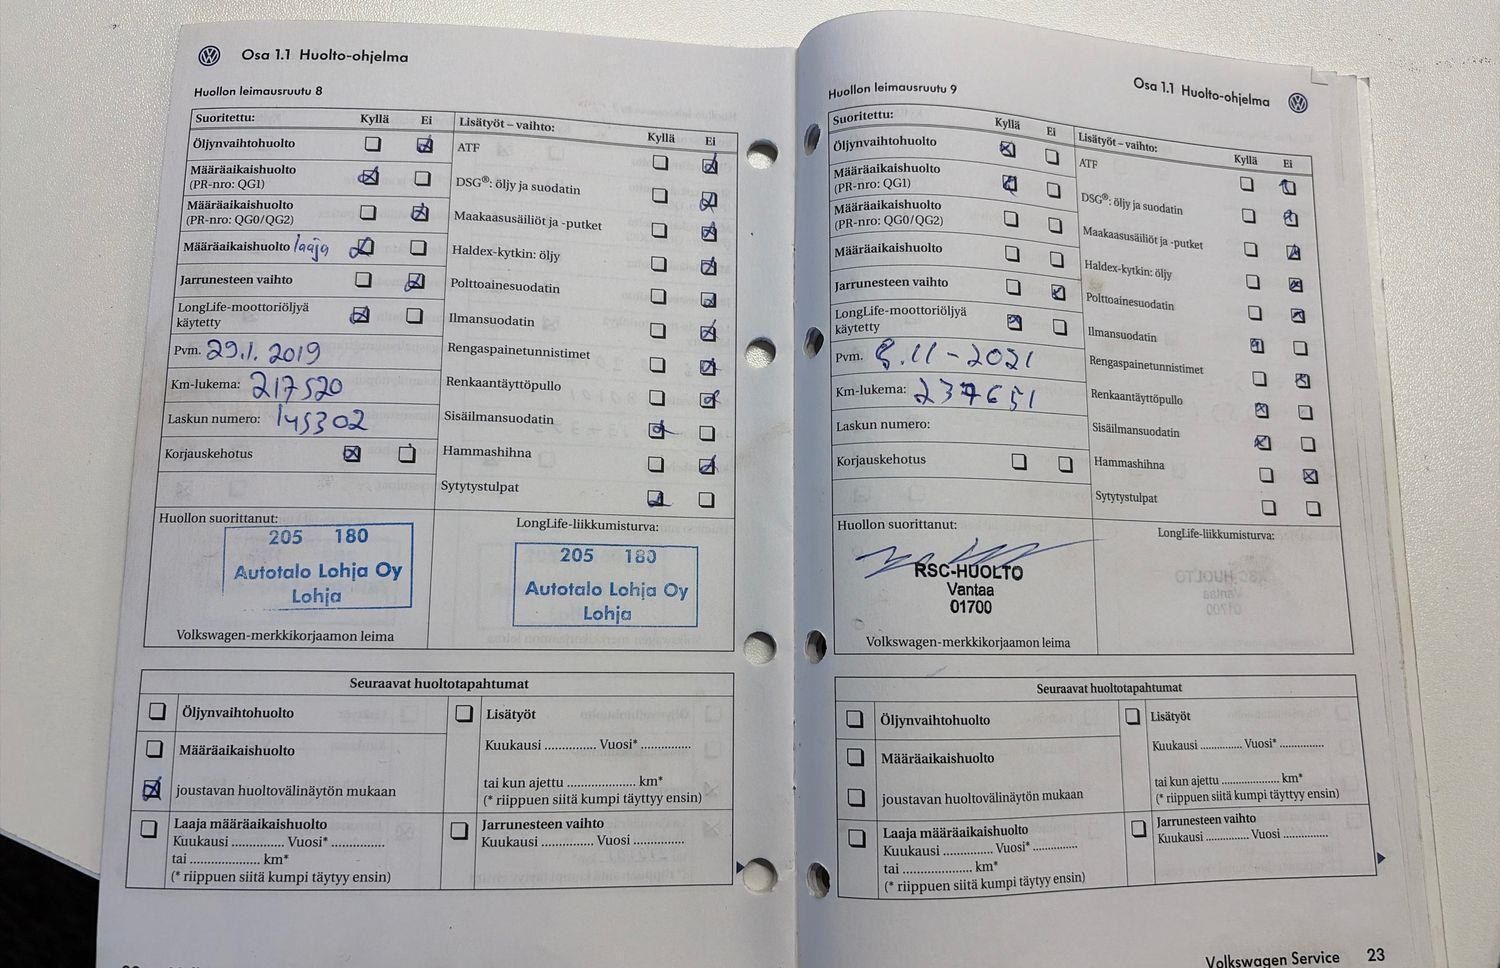 Osa 1.1 Huolto-ohjelma
Huollon leimausruutu 8
Suoritettu: Kyllä Ei
Öljynvaihtohuolto
Määräaikaishuolto
(PR-nro: QG1)
Määräaikaishuolto
(PR-nro: QG0/QG2)
Määräaikaishuolto laaja
Jarrunesteen vaihto
LongLife-moottoriöljyä
käytetty
Pvm. 29.1. 2019
Km-lukema: 217520
Laskun numero: 145302
Korjauskehotus
Lisätyöt – vaihto: Kyllä Ei
ATF
DSG®: öljy ja suodatin
Maakaasusäiliöt ja -putket
Haldex-kytkin: öljy
Polttoainesuodatin
Ilmansuodatin
Rengaspainetunnistimet
Renkaantäyttöpullo
Sisäilmansuodatin
Hammashihna
Sytytystulpat
Huollon suorittanut:
205 180
Autotalo Lohja Oy
Lohja
Volkswagen-merkkikorjaamon leima
LongLife-liikkumisturva:
205 180
Autotalo Lohja Oy
Lohja
Seuraavat huoltotapahtumat
Öljynvaihtohuolto
Määräaikaishuolto
joustavan huoltovälinäytön mukaan
Laaja määräaikaishuolto
Kuukausi .............. Vuosi* ..............
tai ..................... km*
(* riippuen siitä kumpi täytyy ensin)
Lisätyöt
Kuukausi .............. Vuosi* ..............
tai kun ajettu ..................... km*
(* riippuen siitä kumpi täyttyy ensin)
Jarrunesteen vaihto
Kuukausi .............. Vuosi ..............
Osa 1.1 Huolto-ohjelma
Huollon leimausruutu 9
Suoritettu: Kyllä Ei
Öljynvaihtohuolto
Määräaikaishuolto
(PR-nro: QG1)
Määräaikaishuolto
(PR-nro: QG0/QG2)
Määräaikaishuolto
Jarrunesteen vaihto
LongLife-moottoriöljyä
käytetty
Pvm. 8.11-2021
Km-lukema: 237651
Laskun numero:
Korjauskehotus
Lisätyöt – vaihto: Kyllä Ei
ATF
DSG®: öljy ja suodatin
Maakaasusäiliöt ja -putket
Haldex-kytkin: öljy
Polttoainesuodatin
Ilmansuodatin
Rengaspainetunnistimet
Renkaantäyttöpullo
Sisäilmansuodatin
Hammashihna
Sytytystulpat
Huollon suorittanut:
RSC-HUOLTO
Vantaa
01700
Volkswagen-merkkikorjaamon leima
LongLife-liikkumisturva:
Seuraavat huoltotapahtumat
Öljynvaihtohuolto
Määräaikaishuolto
joustavan huoltovälinäytön mukaan
Laaja määräaikaishuolto
Kuukausi .............. Vuosi* ..............
tai ..................... km*
(* riippuen siitä kumpi täytyy ensin)
Lisätyöt
Kuukausi .............. Vuosi* ..............
tai kun ajettu ..................... km*
(* riippuen siitä kumpi täyttyy ensin)
Jarrunesteen vaihto
Kuukausi .............. Vuosi ..............
Volkswagen Service 23